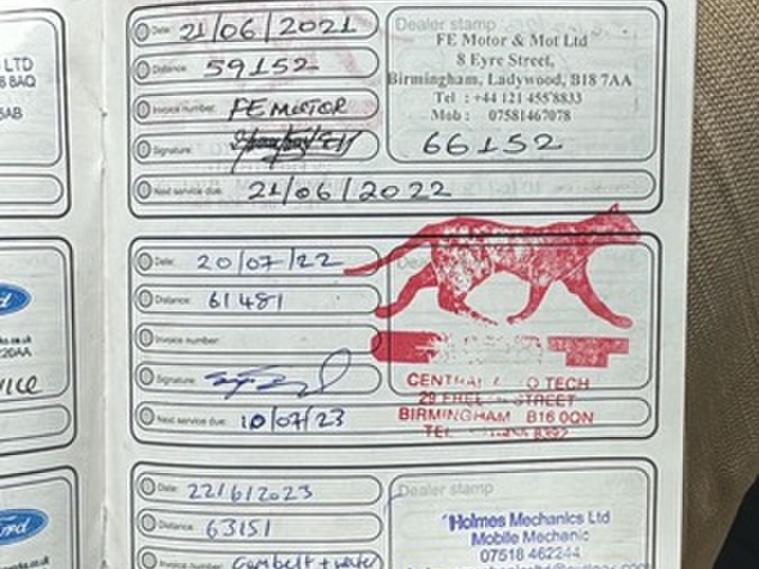 LTD
8AQ
5AB
Date: 21/06/2021
Distance: 59152
Invoice number: FE MOTOR
Signature:
Next service due: 21/06/2022
Dealer stamp
FE Motor & Mot Ltd
8 Eyre Street,
Birmingham, Ladywood, B18 7AA
Tel : +44 121 455 8833
Mob : 07581467078
66152
Ford
20AA
Date: 20/07/22
Distance: 61481
Invoice number:
Signature:
Next service due: 10/07/23
CENTRAL O TECH
29 STREET
BIRMINGHAM B16 0QN
TEL
Ford
Date: 22/6/2023
Distance: 63151
Invoice number: Cambelt + water
Dealer stamp
Holmes Mechanics Ltd
Mobile Mechanic
07518 462244